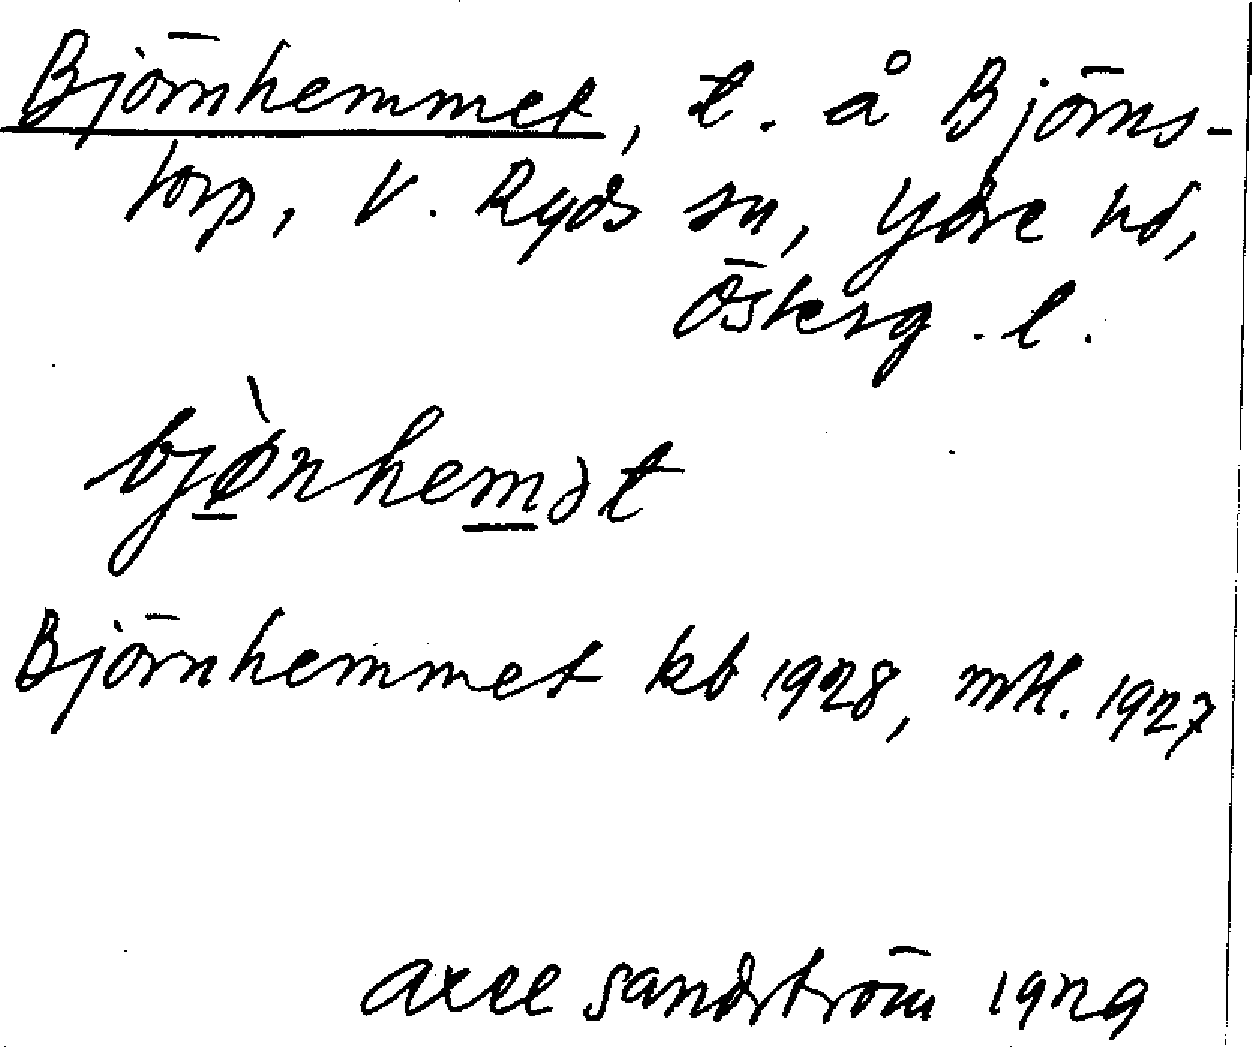 Björnhemmet, t. å Björns-
torp, V. Ryds sn, Ydre hd,
Österg. l.
bjø̀nhemət
Björnhemmet kb 1928, mtl. 1927
Axel Sandström 1929